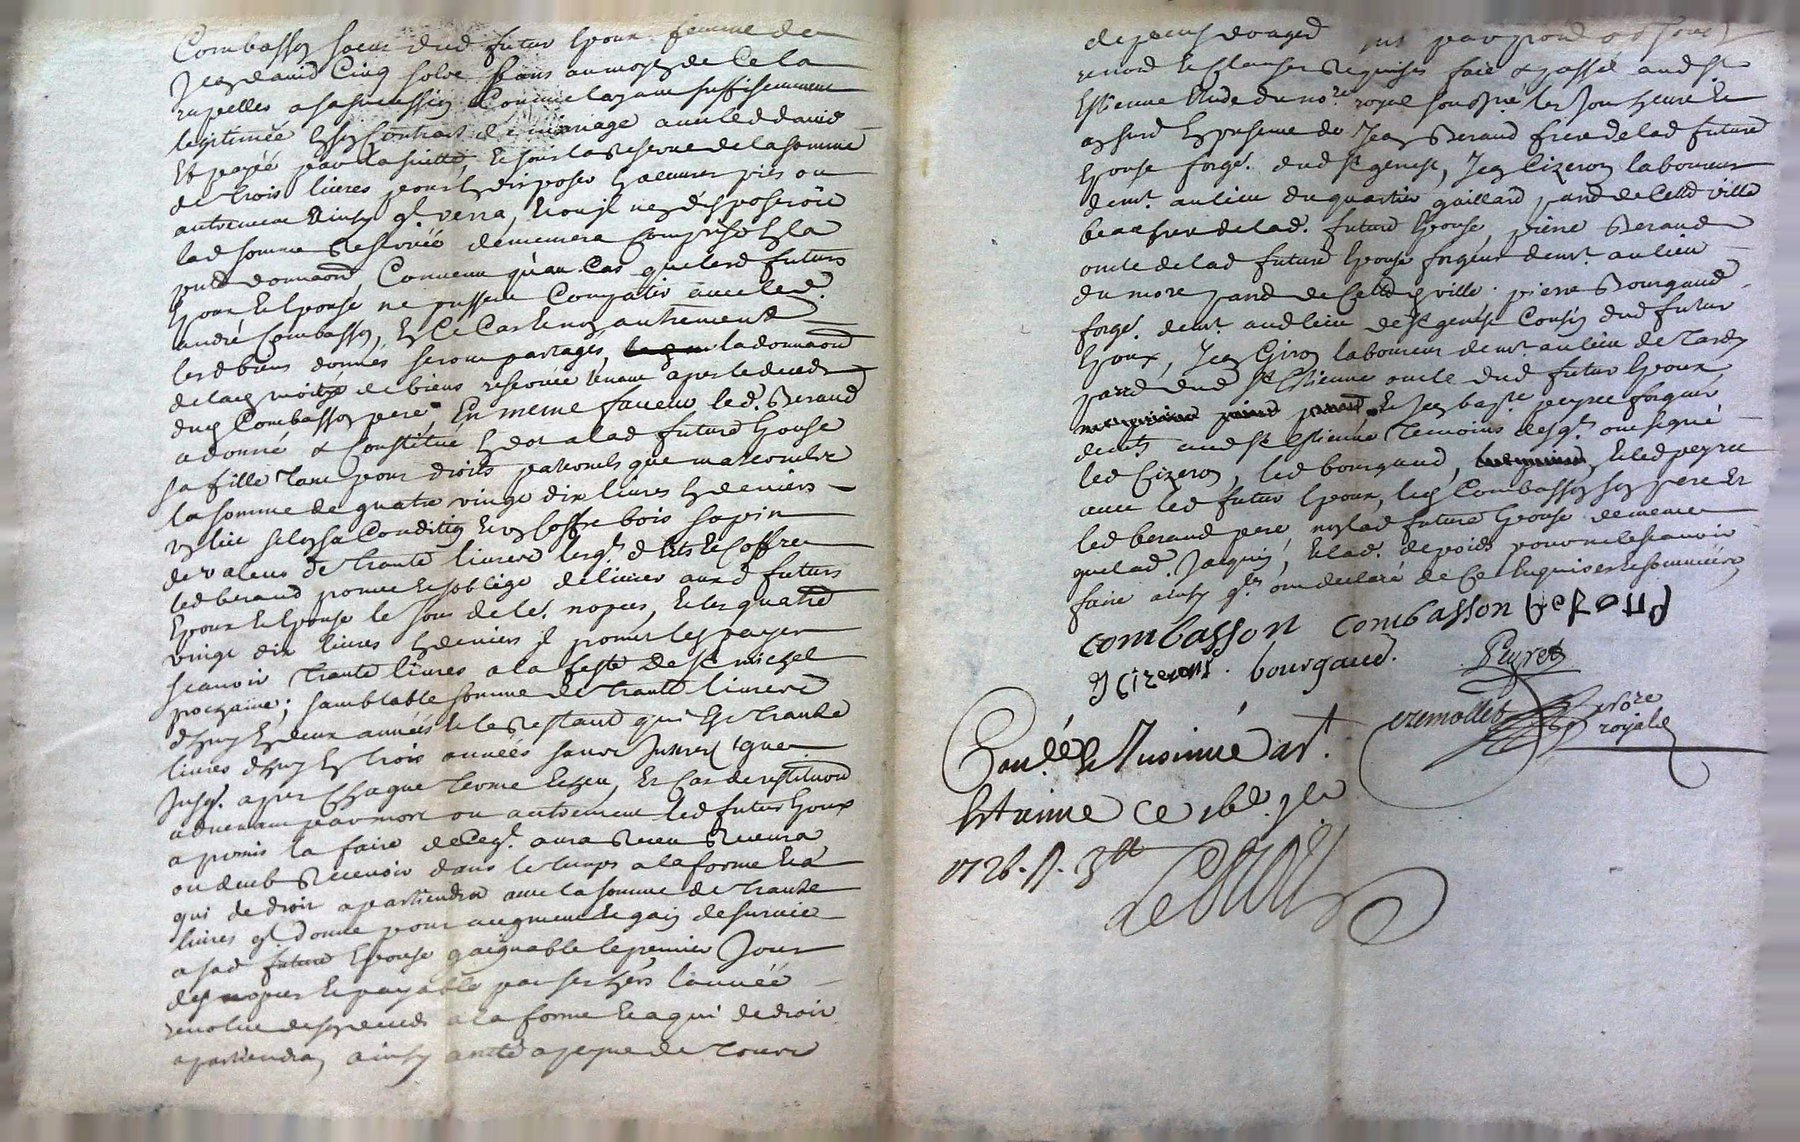 Combasson soeur dud futur Epoux femme de
Jean david Cinq solz sans au moyen de Cela
rapelles a sa succession Comme layant suffisemment
legitimée En son Contrat de mariage avec led david
Et payée par la suitte, Et sous la reserve de la somme
de trois livres pour En disposer En oeuvres pies ou
autrement ainsy ql verra, Et ou jl nen disposeroit
lad somme reservée demeurera Comprise En la
pnte donnaon, Convenu qu'au Cas que lesd futurs
Epoux Et Epouse ne pussent Compatir avec led.
andré Combasson, En Ce Cas Et non autrement
lesd biens donnés seront partagés, la donnaon
de lad moitié de biens reservée tenant apres le deceds
dud Combasson pere. En meme faveur led. Beraud
a donné & Constitué En dot a lad future Epouse
sa fille tant pour droits paternels que maternels
la somme de quatre vingt dix livres En deniers
un lit selon sa Condition Et un Coffre bois sapin
de valeur de trante livres lesqls dits lit Et Coffre
led beraud promet Et soblige delivrer auxd futurs
Epoux Et Epouse le jour de le. nopces, Et les quatre
vingt dix livres En deniers jl promet les payer
scavoir trante livres a la feste de st michel
prochaine; samblable somme de trante livres
dhuy En deux années Et le restant qui Est trante
livres dhuy En trois années sans Interest que
jusq. apres Chaque terme Echeu, Et Cas de restitution
advenant par mort ou autrement led futur Epoux
a promis la faire de Ce ql. aura receu recevra
ou deub recevoir dans le temps a la forme Et a
qui de droit apartiendra avec la somme de trante
livres ql donne pour augment Et gain de survie
a sad future Epouse gaignable le premier jour
des nopces Et payable par ses hers l'année
revolue de son deceds a la forme Et a qui de droit
apartiendra, ainsy a esté a peyne de tous
depens domages par
renond Et Clauses requises fait & passé aud st
Estienne Etude du nore. royal soussigné les jour heure Et
an susd En presence de Jean Beraud frere de lad future
Epouse forger. dud st genest, Jean Cizeron laboureur
demt. au lieu du quartier gaillard parre de Cette ville
beau frere de lad. future Epouse, pierre Beraud
oncle de lad future Epouse forgeur demt. au lieu
du more parre de Cette ville. pierre Bourgaud
forge. demt. aud lieu de st genest Cousin dud futur
Epoux, Jean Giron laboureur demt. au lieu de tardy
parre dud st Estienne oncle dud futur Epoux
Et Jean bapte. peyret forgeur
demts aud st Estienne temoins desqls ont signé
led Cizeron, led bourgaud, Et led peyret
avec led futur Epoux, led Combasson son pere Et
led beraud pere, non lad future Epouse de meme
que lad. Jacquin, Et lad. depoids pour ne le scavoir
faire ainsy qls. ont declaré de Ce Enquis Et sommés
combasson combasson beraud
J Cizeron. bourgaud. Peyret
cremollet nore
royale
Conlé Et Insinué a st.
Estienne Ce 16e. 7bre
1726. R. 3tt